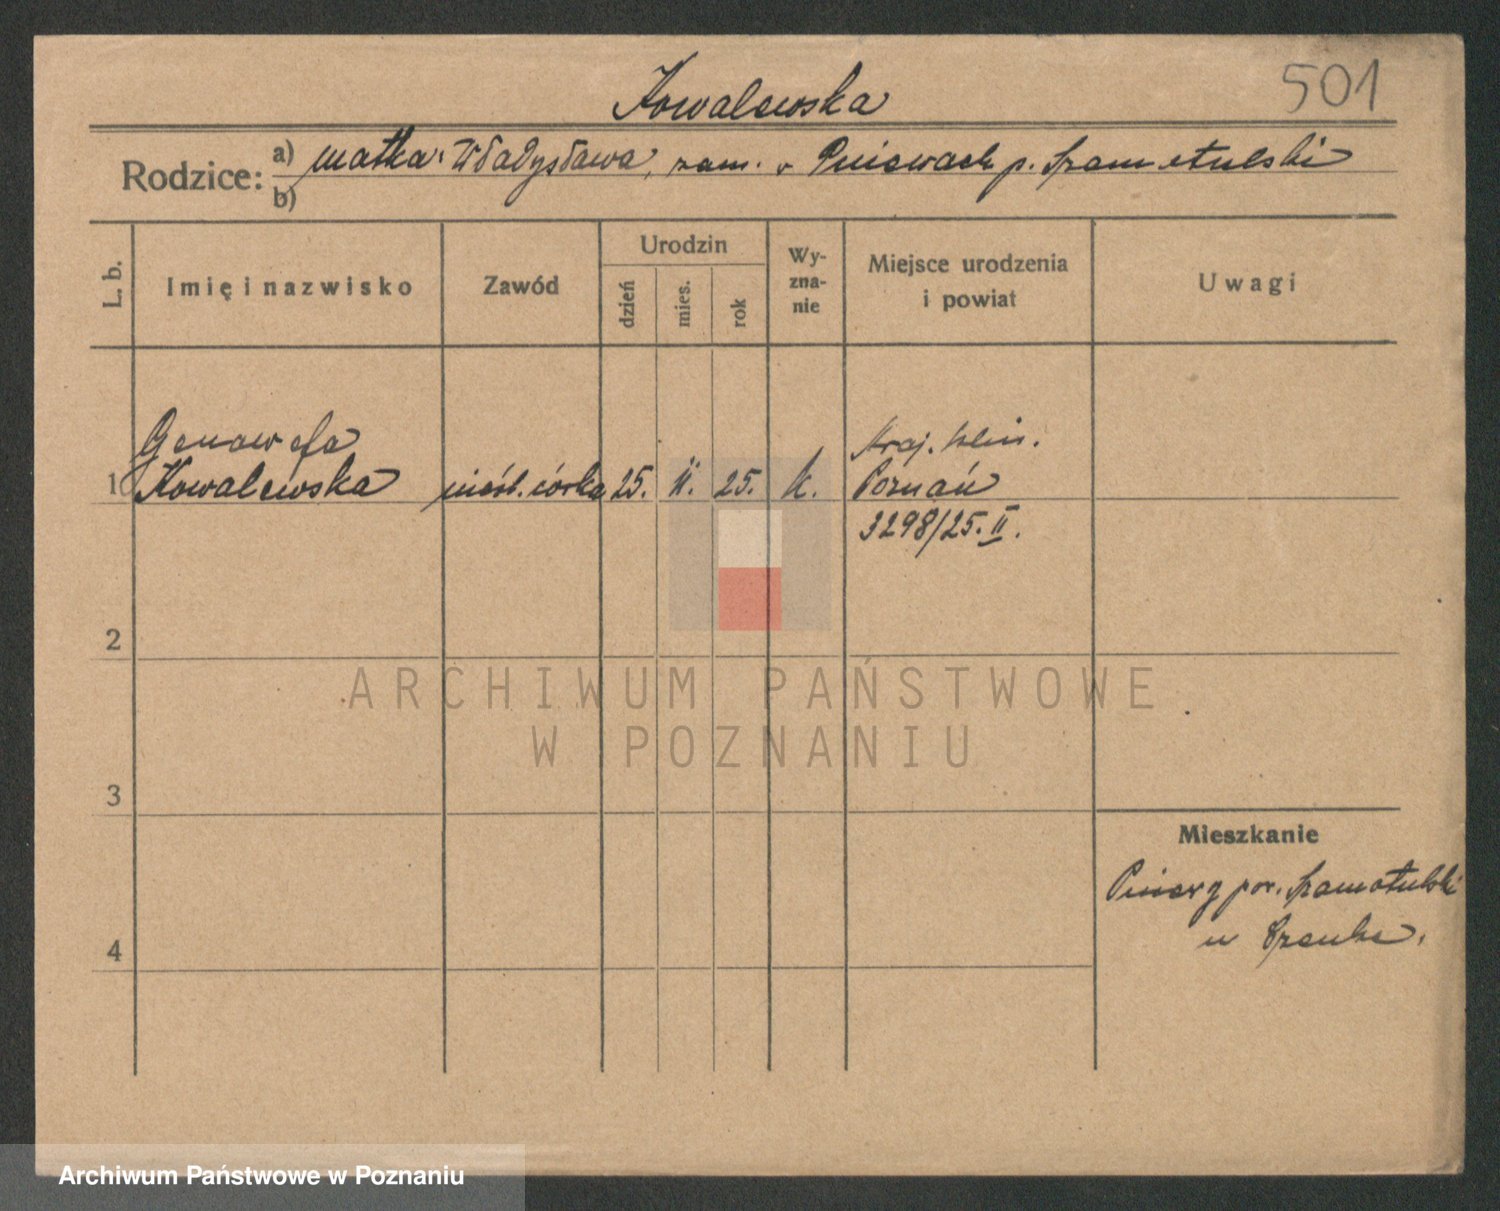 Kowalewska
501
Rodzice: a) matka: Władysława, zam. w Pniewach p. Szamotulski
b)
L. b.
Imię i nazwisko
Zawód
Urodzin
dzień
mies.
rok
Wy-
zna-
nie
Miejsce urodzenia
i powiat
Uwagi
Genowefa
Kraj. klin.
1 Kowalewska nieśl. córka 25. II. 25. k. Poznań
3298/25. II.
2
ARCHIWUM PAŃSTWOWE
W POZNANIU
3
Mieszkanie
Pniewy pow. Szamotulski
4
u
Archiwum Państwowe w Poznaniu